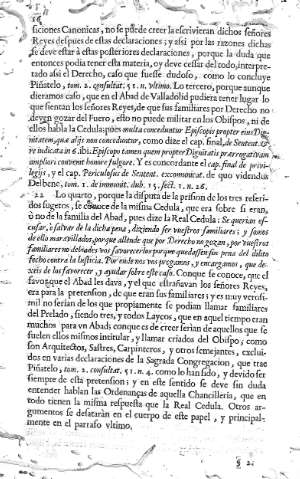 16
siciones Canonicas, no se puede creer la escrivieran dichos señores
Reyes despues de estas declaraciones; y assi por las razones dichas
se deve estar à estas posteriores declaraciones, porque la duda que
entonces podia tener esta materia, oy deve cessar del todo, interpre-
tado assi el Derecho, caso que fuesse dudoso, como lo concluye
Piñatelo, tom. 2. consultat. 51. n. ultimo. Lo tercero, porque aunque
dieramos caso, que en el Abad de Valladolid pudiera tener lugar lo
que sientan los señores Reyes, de que sus familiares por Derecho no
deven gozar del Fuero, esto no puede militar en los Obispos, ni de
ellos habla la Cedula: pues multa conceduntur Episcopis propter eius Dig-
nitatem, quæ alijs non conceduntur, como dize el cap. final, de Sentent.
re iudicata in 6. ibi. Episcopo tamen quem propter Dignitatis prærogativam
ampliori convenit honore fulgere. Y es concordante el cap. final de privi-
legijs, y el cap. Periculoso de Sentent. excommunicat. de quo videndus
Delbene, tom. 1. de immunit. dub. 15. sect. 1. n. 26.
22 Lo quarto, porque la disputa de la prision de los tres referi-
dos sugetos, se conoce de la misma Cedula, que era sobre si eran,
ò no de la familia del Abad, pues dize la Real Cedula: Se querian es-
cusar, ò salvar de la dicha pena, diziendo ser vuestros familiares; y somos
de ello maravillados, porque allende que por Derecho no gozan, por vuestros
familiares no debiades vos favorecerlos porque quedassen sin pena del delito
fecho contra la Iusticia. Por ende nos vos rogamos, y encargamos, que de-
xeis de los favorecer, y ayudar sobre este caso. Conque se conoce, que el
favor que el Abad les dava, y el que estrañavan los señores Reyes,
era para la pretension, de que eran sus familiares; y es muy verisi-
mil no serian de los que propiamente se podian llamar familiares
del Prelado, siendo tres, y todos Laycos, que en aquel tiempo eran
muchos para un Abad; conque es de creer serian de aquellos que se
suelen ellos mismos intitular, y llamar criados del Obispo; como
son Arquitectos, Sastres, Carpinteros, y otros semejantes, exclui-
dos en varias declaraciones de la Sagrada Congregacion, que trae
Piñatelo, tom. 2. consultat. 51. n. 4. como lo han sido, y devido ser
siempre de esta pretension; y en este sentido se deve sin duda
entender hablan las Ordenanças de aquella Chancilleria, que en
todo tienen la misma respuesta que la Real Cedula. Otros ar-
gumentos se desatarán en el cuerpo de este papel, y principal-
mente en el parrafo ultimo.
§ 2.